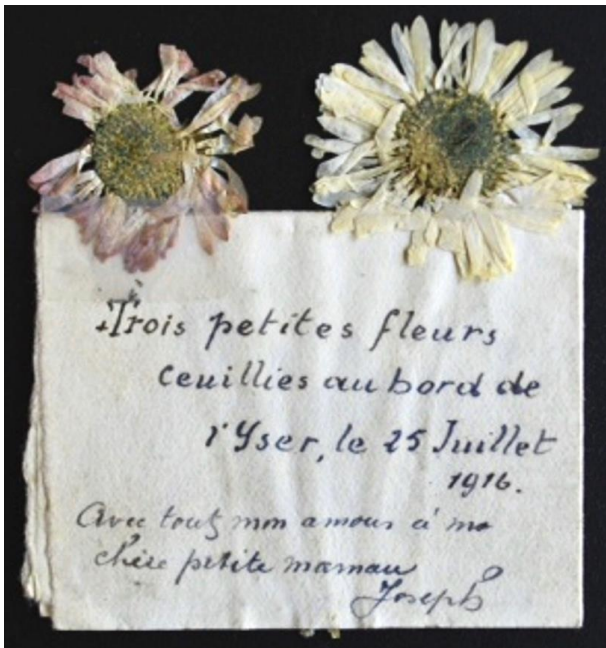 Trois petites fleurs
ceuillies au bord de
l'Yser, le 25 Juillet
1916.
Avec tout mon amour à ma
chère petite maman
Joseph